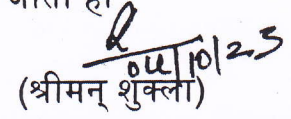 जाता हो
04/10/23
(श्रीमन् शुक्ला)